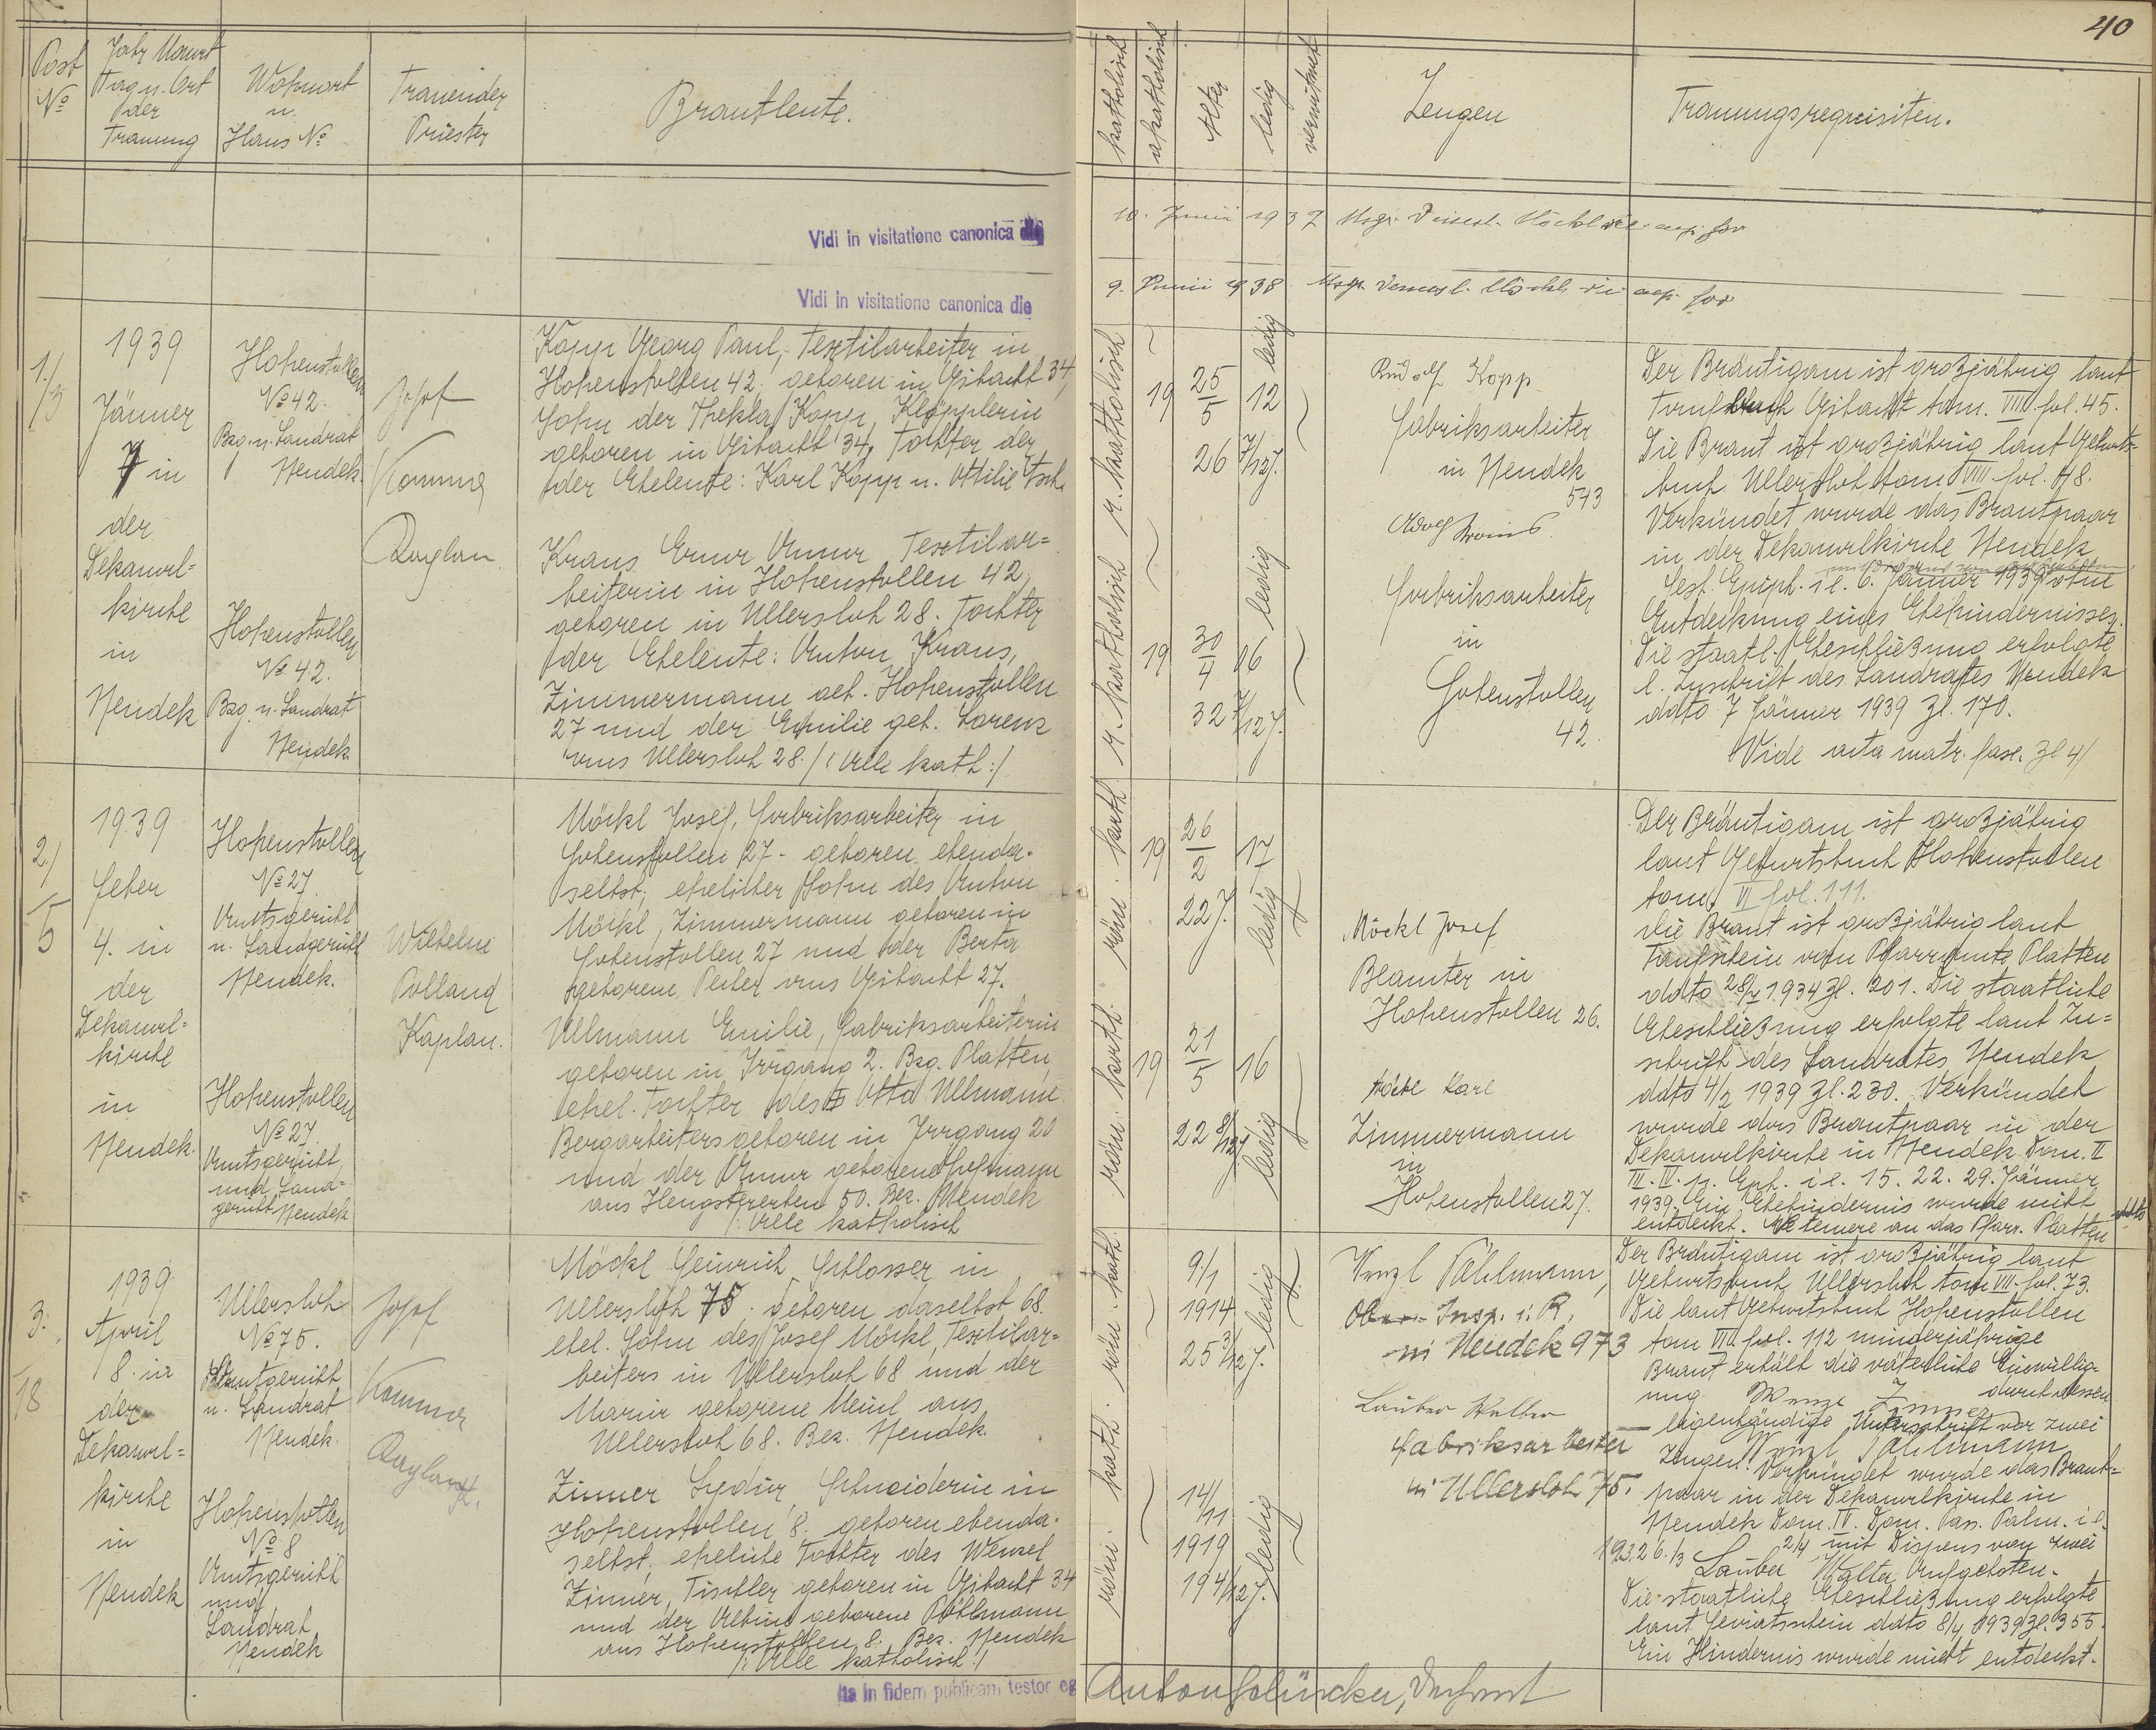 40
Post
No
Jahr Monat
Tag u. Ort
der
Trauung
Wohnort
u.
Haus No
Trauender
Priester
Brautleute.
katholisch
akatholisch
Alter
ledig
verwitwet
Zeugen
Trauungsrequisiten.
Vidi in visitatione canonica die
10. Junii 1937 Msgr.
Vidi in visitatione canonica die
9. Junii 1938 Msgr.
1./
3
1939
Jänner
7 in
der
Dekanal=
kirche
in
Neudek
Hohenstollen
No 42.
Bzg. u. Landrat
Neudek
Hohenstollen
No 42.
Bzg. u. Landrat
Neudek
Josef
Kaplan
Kopp Georg Paul, Textilarbeiter in
Hohenstollen 42. geboren in Gibacht 34,
Sohn der Thekla Kopp, Klöpplerin
geboren in Gibacht 34, Tochter der
der Eheleute: Karl Kopp u. Ottilie
Kraus Erna Anna Textilar=
beiterin in Hohenstollen 42,
geboren in Ullersloh 28. Tochter
der Eheleute: Anton Kraus,
Zimmermann aet. Hohenstollen
27 und der Emilie geb. Lorenz
aus Ullersloh 28. /: Alle kath :/
r. katholisch
19 25/5 12
26 7/12 J.
ledig
r. katholisch
19 30/4 06
32 7/12 J.
ledig
Rudolf Kopp
Fabriksarbeiter
in Neudek
543
Adolf Kraus
Fabriksarbeiter
in
Hohenstollen
42.
Der Bräutigam ist großjährig laut
Taufbuch Gibacht tom. VIII fol. 45.
Die Braut ist großjährig laut Geburts-
buch Ullersloh tom VIII. fol. 48.
Verkündet wurde das Brautpaar
in der Dekanalkirche Neudek
Fest. Epiph. i.e. 6. Jänner 1939 ohne
Entdeckung eines Ehehindernisses.
Die staatl. Eheschließung erfolgte
l. Zuschrift des Landrates Neudek
ddto 7 Jänner 1939 Zl. 170.
Vide acta matr. fasc. Zl 4/
2./
5
1939
Feber
4. in
der
Dekanal=
kirche
in
Neudek.
Hohenstollen
No 27
Amtsgericht
u. Landgericht
Neudek.
Hohenstollen
No 27.
Amtsgericht
und Land=
gericht Neudek
Wilhelm
Polland
Kaplan.
Möckl Josef, Fabriksarbeiter in
Hohenstollen 27 - geboren ebenda-
selbst, ehelicher Sohn des Anton
Möckl, Zimmermann geboren in
Hohenstollen 27 und der Berta
geborene Peiler aus Gibacht 27.
Ullmann Emilie, Fabriksarbeiterin
geboren in Irrgang 2. Bzg. Platten
ehel. Tochter des Otto Ullmann
Bergarbeiters geboren in Irrgang 20
und der Anna geborene Hofmann
aus Hengstererben 50. Bez. Neudek
/: Alle katholisch
röm. kath.
19 26/2 17
22 J.
ledig
röm. kath.
19 21/5 16
22 8/12 J
ledig
Möckl Josef
Beamter in
Hohenstollen 26.
Möckl Karl
Zimmermann
in
Hohenstollen 27.
Der Bräutigam ist großjährig
laut Geburtsbuch Hohenstollen
tom. VI fol. 111.
Die Braut ist großjährig laut
Taufschein vom Pfarramte Platten
ddto 28/ 1934 Zl. 201. Die staatliche
Eheschließung erfolgte laut Zu=
schrift des Landrates Neudek
ddto 4/2 1939 Zl. 230. Verkündet
wurde das Brautpaar in der
Dekanalkirche in Neudek Dom. II
III. IV. p. Eph. i.e. 15. 22. 29. Jänner
1939. Ein Ehehindernis wurde nicht
entdeckt. an das Pfarr. Platten
3.
18
1939
April
8. in
der
Dekanal=
kirche
in
Neudek
Ullersloh
No 75.
Amtsgericht
u. Landrat
Neudek.
Hohenstollen
No 8
Amtsgericht
und
Landrat
Neudek
Josef
Möckl Heinrich, Schlosser in
Ullersloh 75. geboren daselbst 68.
ehel. Sohn des Josef Möckl, Textilar=
beiters in Ullersloh 68 und der
Maria geborene Meinl aus
Ullersloh 68. Bez. Neudek.
Zinner Lydia, Schneiderin in
Hohenstollen 8. geboren ebenda-
selbst, eheliche Tochter des Wenzel
Zinner, Tischler geboren in Gibacht 34
und der Albina geborene Pöhlmann
aus Hohenstollen 8. Bez. Neudek
/: Alle katholisch :/
röm. kath.
9/1
1914
25 3/12 J.
ledig
röm. kath.
14/11
1919
19 4/12 J.
ledig
Wenzl Pöhlmann,
Ober-Insp. i. R.
in Neudek 973
Lauber Walter
Fabriksarbeiter
in Ullersloh 75.
Der Bräutigam ist großjährig laut
Geburtsbuch Ullersloh tom VII. fol. 73.
Die laut Geburtsbuch Hohenstollen
tom VII fol. 112 minderjährige
Braut erhält die väterliche Einwillig-
ung Wenzl Zinner durch dessen
eigenhändige Unterschrift vor zwei
Zeugen. Wenzl Pöhlmann
Verkündet wurde das Braut=
paar in der Dekanalkirche in
Neudek Dom. IV. Dom. Pas. Palm. i.e.
19 3. 26./3 2/4 mit Dispens von zwei
Lauber Walter Aufgeboten.
Die staatliche Eheschließung erfolgte
laut Heiratsschein ddto 8/4 1939 Zl. 355.
Ein Hindernis wurde nicht entdeckt.
Ita in fidem publicam testor eg
Anton